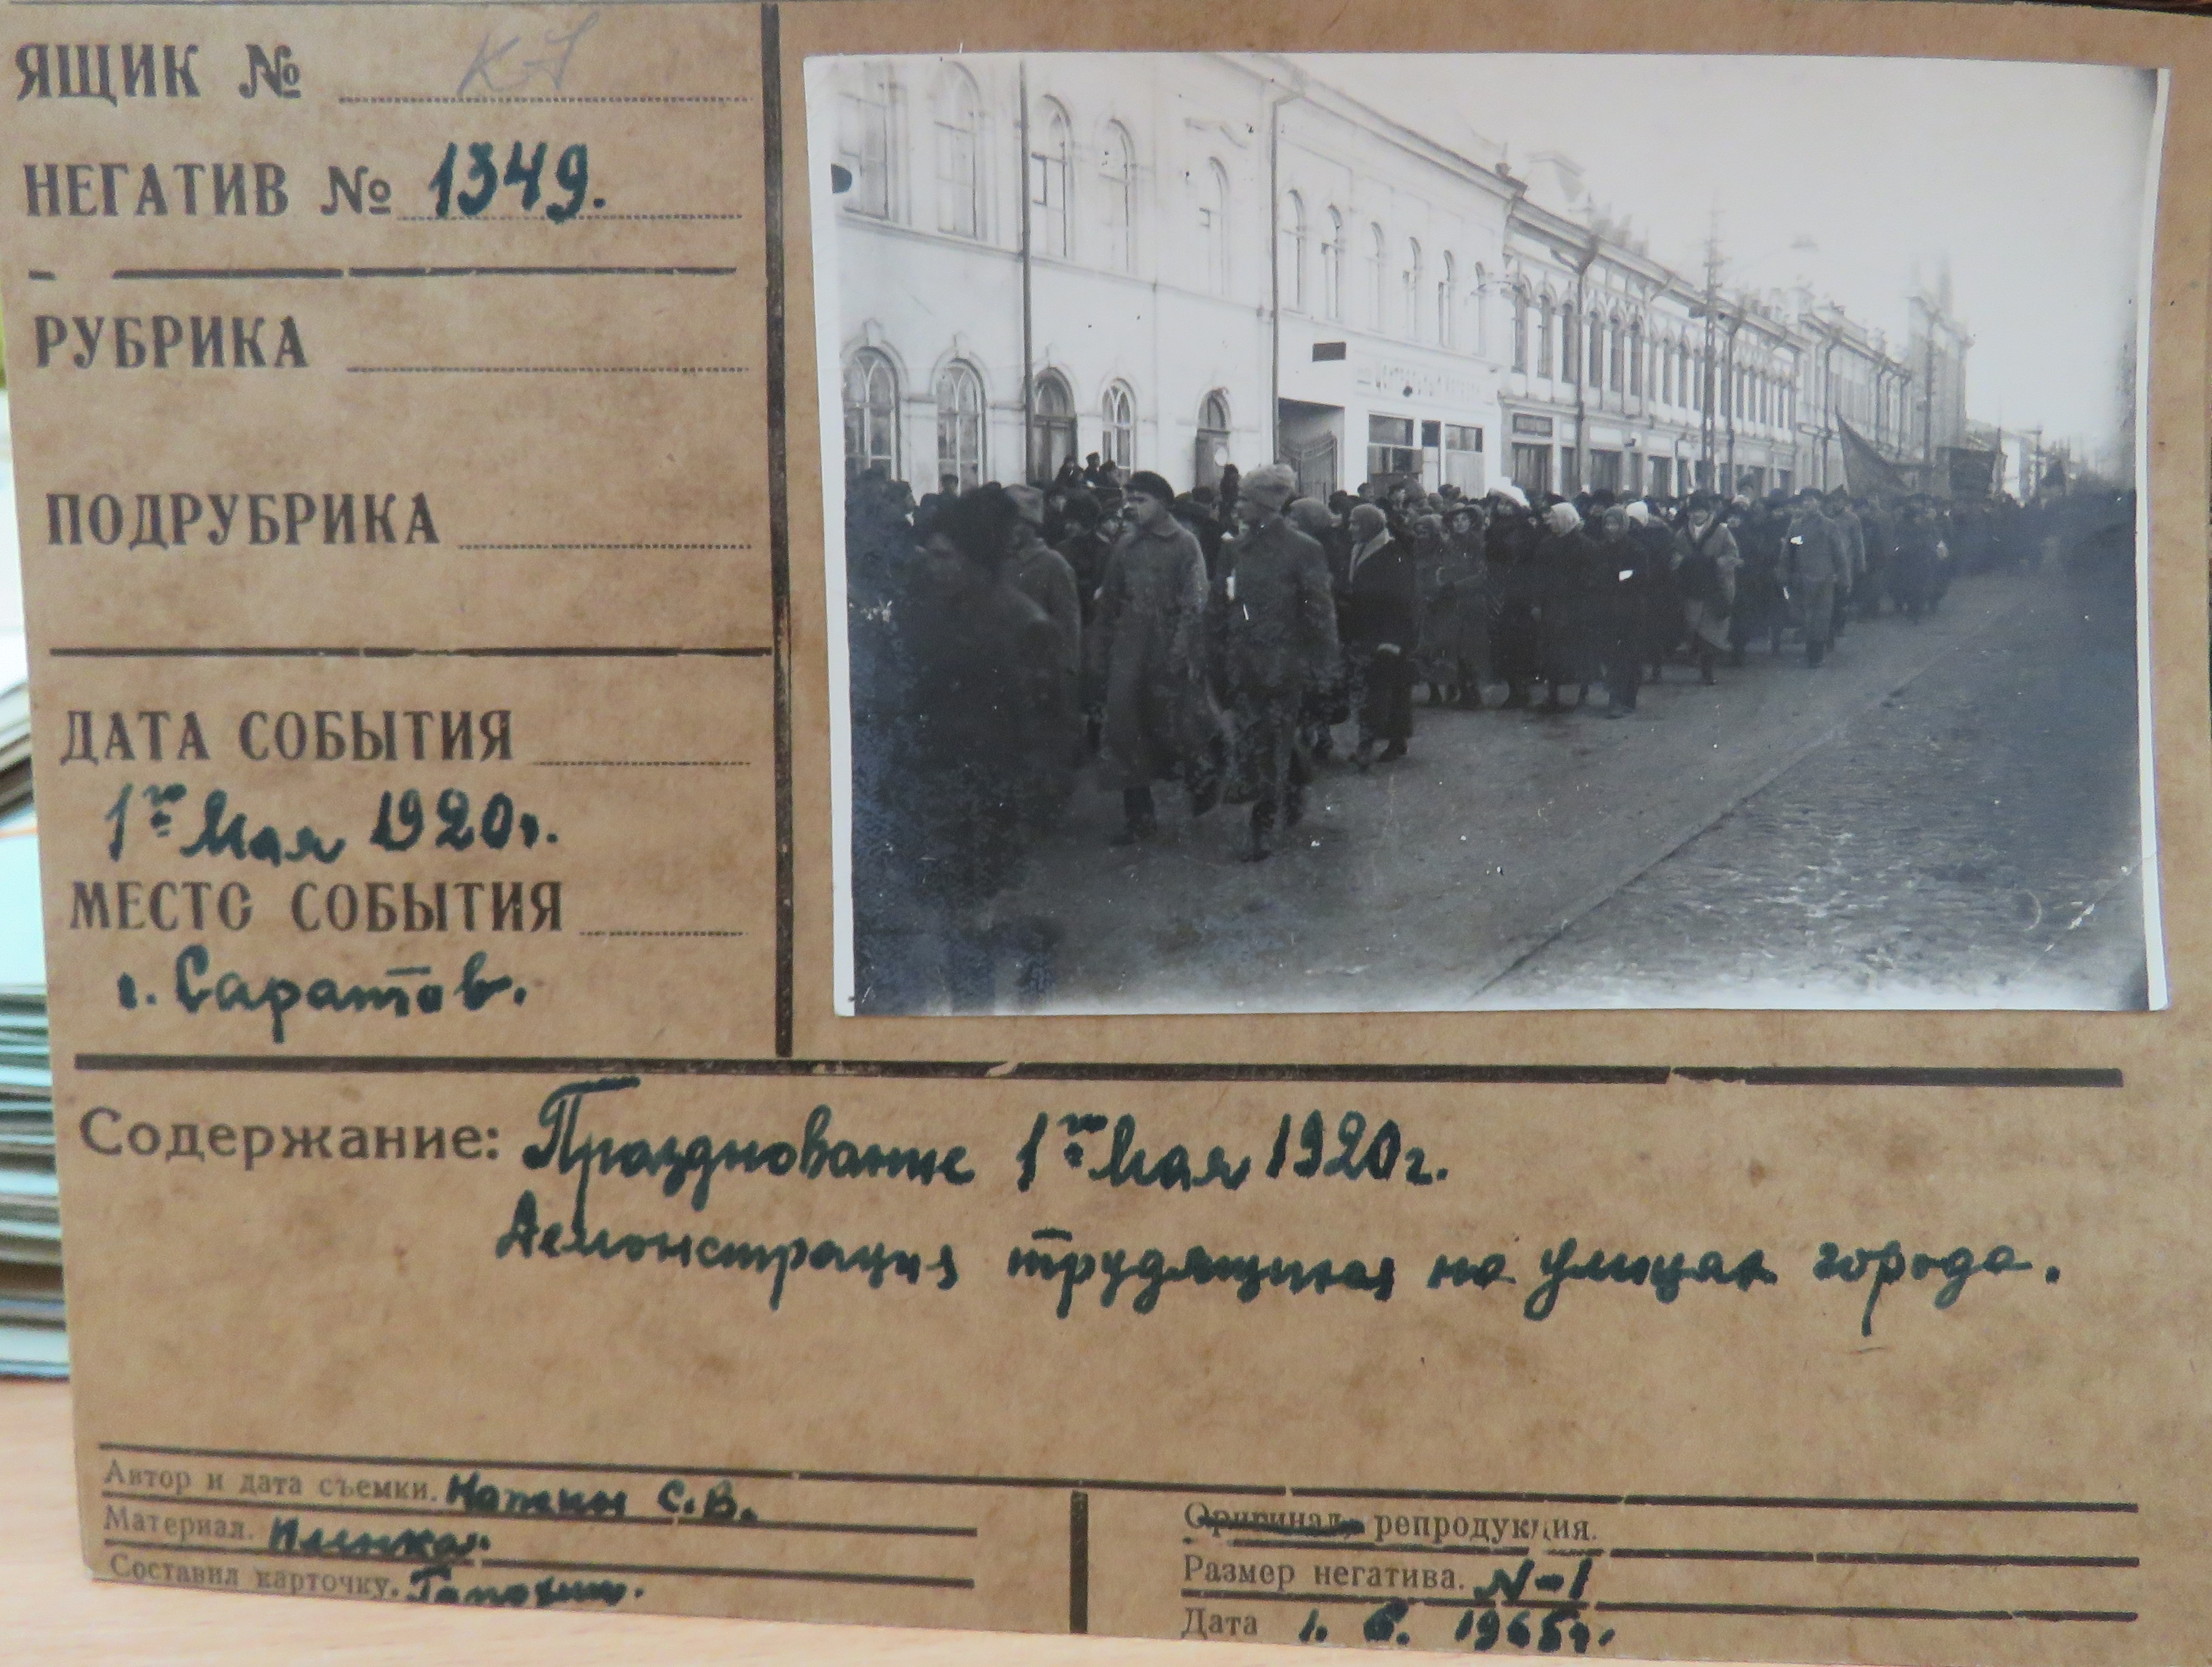 ЯЩИК №
НЕГАТИВ № 1349.
РУБРИКА
ПОДРУБРИКА
ДАТА СОБЫТИЯ
1го Мая 1920г.
МЕСТО СОБЫТИЯ
г. Саратов.
Содержание: Празднование 1го Мая 1920г.
Демонстрация трудящихся на улицах города.
Автор и дата съемки. С.В.
Материал. Пленка.
Составил карточку.
Оригинал, репродукция.
Размер негатива. N-1
Дата 1. 6. 1965г.